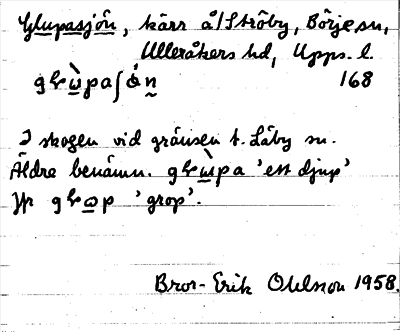 Glupasjön, kärr å/ Ströby, Börje sn,
Ulleråkers hd, Upps. l.
glùpaʃön 168
I skogen vid gränsen t. Läby sn.
Äldre benämn. glùpa 'ett djup'
Jfr glop 'grop'.
Bror-Erik Ohlson 1958.